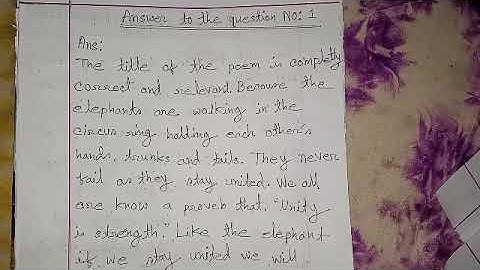 Answer to the question No: 1
Ans:
The title of the poem is completly
correct and relevant. Because the
elephants are walking in the
circus ring holding each other's
hands, trunks and tails. They never
fail as they stay united. We all
are know a proveb that. "Unity
is strength." Like the elephant
if we stay united we will